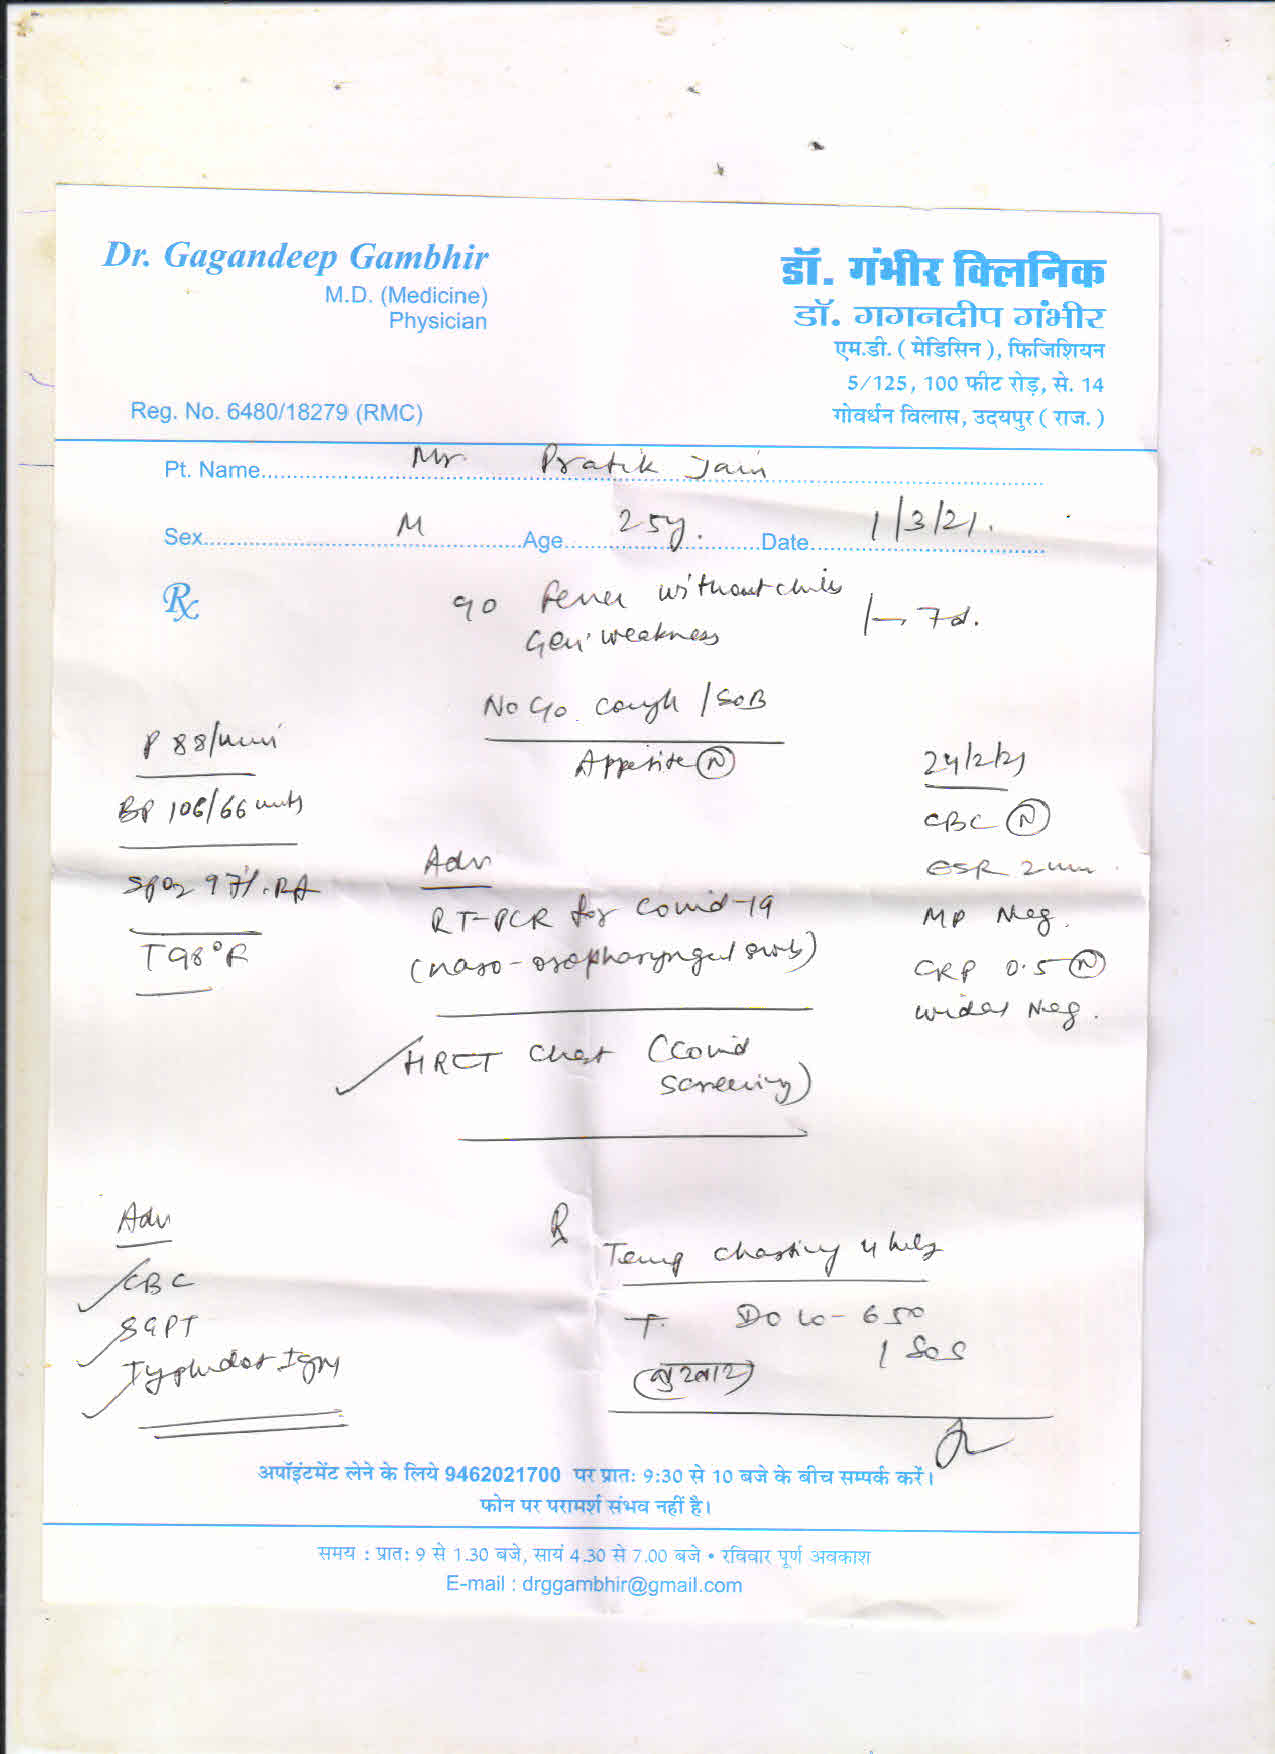 Dr. Gagandeep Gambhir
M.D. (Medicine)
Physician
Reg. No. 6480/18279 (RMC)
डॉ. गंभीर क्लिनिक
डॉ. गगनदीप गंभीर
एम.डी. ( मेडिसिन ), फिजिशियन
5/125, 100 फीट रोड़, से. 14
गोवर्धन विलास, उदयपुर ( राज. )
Pt. Name Mr. Pratik Jain
Sex M Age 25y. Date 1/3/21.
Rx
c/o Fever without chills
Gen weakness
7d.
No c/o cough / SOB
Appetite (N)
P 88/min
BP 106/66 mmHg
SpO2 97% RA
T 98°F
24/2/21
CBC (N)
ESR 2 mm
MP Neg.
CRP 0.5 (N)
Widal Neg.
Adv
RT-PCR for Covid-19
(naso-oropharyngeal swab)
HRCT Chest (Covid
screening)
Adv
CBC
SGPT
Typhidot IgM
Rx
Temp charting 4 hrly
T. Dolo-650
1 SOS
(बुखार)
अपॉइंटमेंट लेने के लिये 9462021700 पर प्रात: 9:30 से 10 बजे के बीच सम्पर्क करें।
फोन पर परामर्श संभव नहीं है।
समय : प्रात: 9 से 1.30 बजे, सायं 4.30 से 7.00 बजे • रविवार पूर्ण अवकाश
E-mail : drggambhir@gmail.com